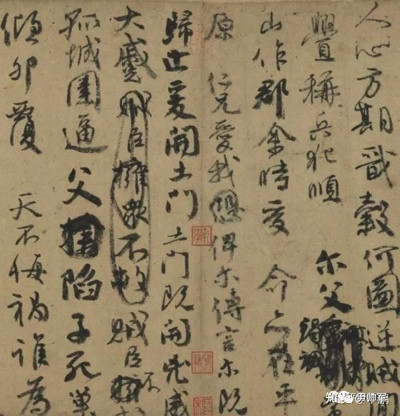 人心方期戩穀何圖逆賊閒
釁稱兵犯順 尔父竭誠
山作郡余時受 命亦在平
原 仁兄愛我恐俾尔傳言尔既
歸止爰開土門土門既開兇威
大蹙賊臣擁衆不救賊臣不
孤城圍逼父陷子死巢
傾卵覆 天不悔禍誰為